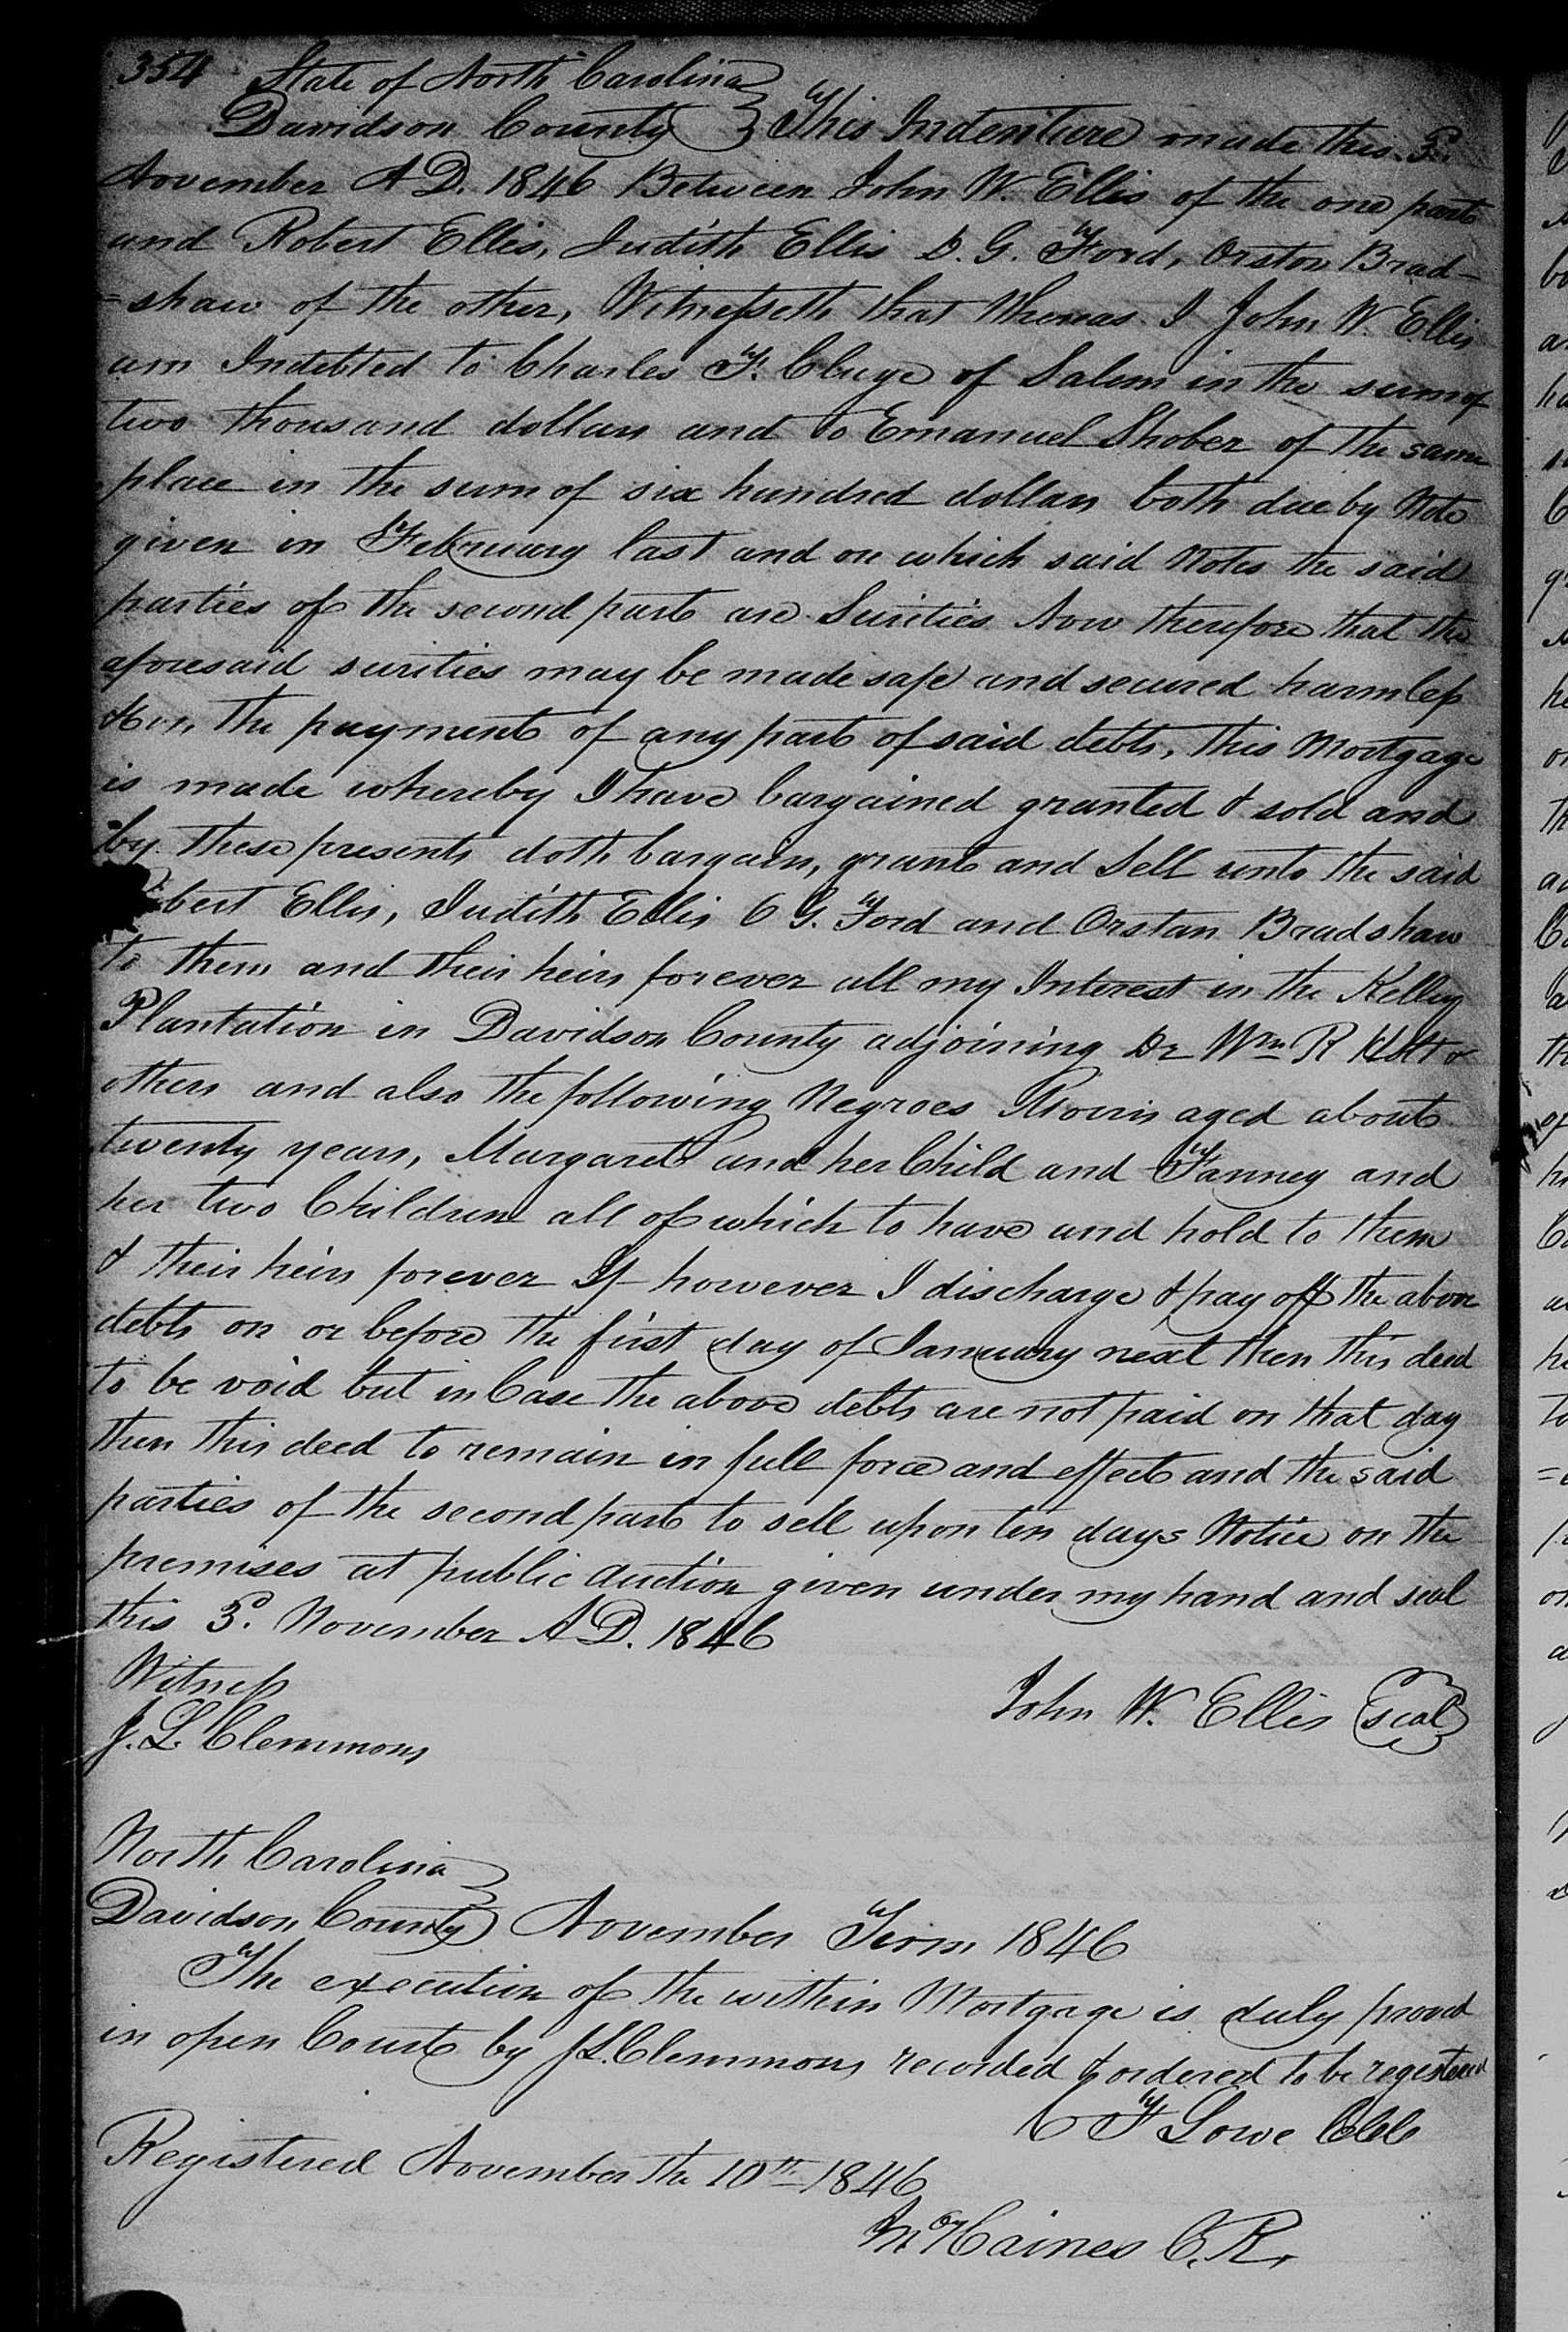 354 State of North Carolina
Davidson County } This Indenture made this 3.
November A D. 1846 Between John W. Ellis of the one part
and Robert Ellis, Judith Ellis D. G. Ford, Orston Brad-
=shaw of the other, Witnesseth that Whereas I John W. Ellis
am Indebted to Charles F. Cluge of Salem in the sum of
two thousand dollars and to Emanuel Shober of the same
place in the sum of six hundred dollars both due by Note
given in February last and on which said Notes the said
parties of the second part are Surities Now therefore that the
aforesaid surities may be made safe and secured harmless
the payment of any part of said debts, this Mortgage
is made whereby I have bargained granted & sold and
by these presents doth bargain, grant and Sell unto the said
bert Ellis, Judith Ellis C G. Ford and Orstan Bradshaw
to them and their heirs forever all my Interest in the Kelley
Plantation in Davidson County adjoining Dr Wm R Holt &
others and also the following Negroes aged about
twenty years, Margaret and her Child and Fanney and
her two Children all of which to have and hold to them
& their heirs forever If however I discharge & pay off the above
debts on or before the first day of January next then this deed
to be void but in Case the above debts are not paid on that day
then this deed to remain in full force and effect and the said
parties of the second part to sell upon ten days Notice on the
premises at public auction given under my hand and seal
this 3. November A D. 1846
Witness
John W. Ellis (seal)
J. L. Clemmons
North Carolina
Davidson County } November Term 1846
The execution of the within Mortgage is duly proved
in open Court by J L. Clemmons recorded & ordered to be registered
C F Lowe Clk
Registered November the 10th 1846
Haines C. R.